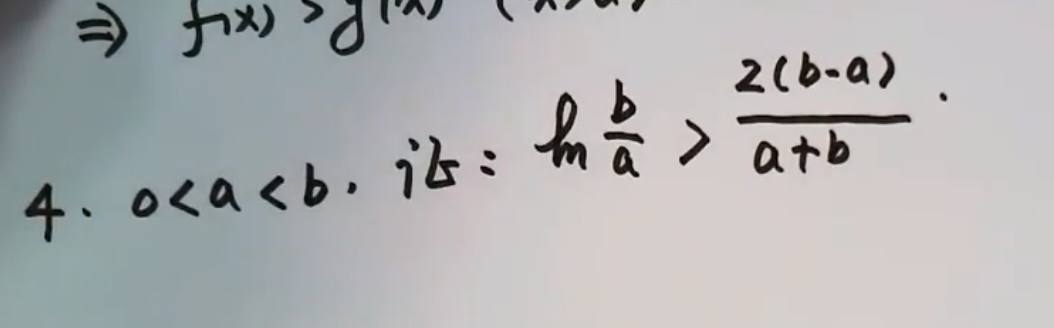 ⇒ f(x) > g(x) (x>a)
4. 0<a<b. 证: ln b/a > 2(b-a)/a+b.